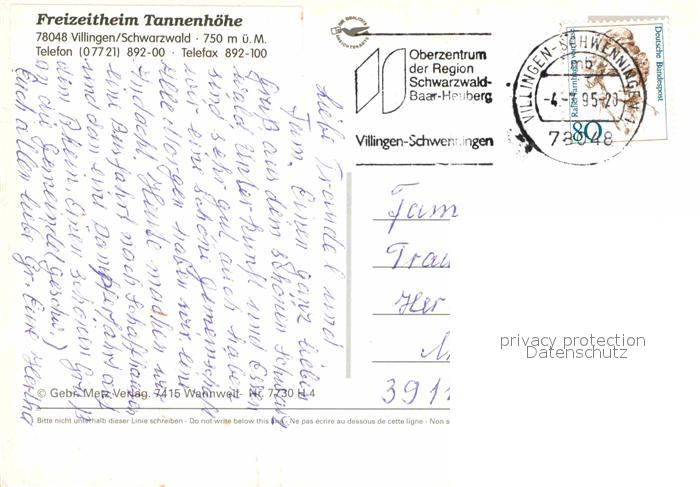 Freizeitheim Tannenhöhe
78048 Villingen/Schwarzwald · 750 m ü. M.
Telefon (0 77 21) 892-00 · Telefax 892-100
Liebe Traudel und
Fam. Einen ganz lieben
Gruß aus dem schönen
Unterkunft und Essen
sind sehr gut auch haben
wir eine schöne Gemeinschaft
haben wir eine
Heute machen wir
ein Busfahrt nach Schaffhausen
und dann eine Dampferfahrt auf
dem Rhein. Einen schönen Gruß
a die Gemeinde (Geschw.)
Euch allen liebe Gr. Eure
© Gebr. Metz Verlag. 7415 Wannweil - Nr. 7730 H 4
Bitte nicht unterhalb dieser Linie schreiben - Do not write below this line - Ne pas écrire au dessous de cette ligne - Non s
Oberzentrum
der Region
Schwarzwald-
Baar-Heuberg
Villingen-Schwenningen
VILLINGEN-SCHWENNINGEN 1
mb
95-20
78048
Deutsche Bundespost
80
Fam
Trau
Her
391
privacy protection
Datenschutz